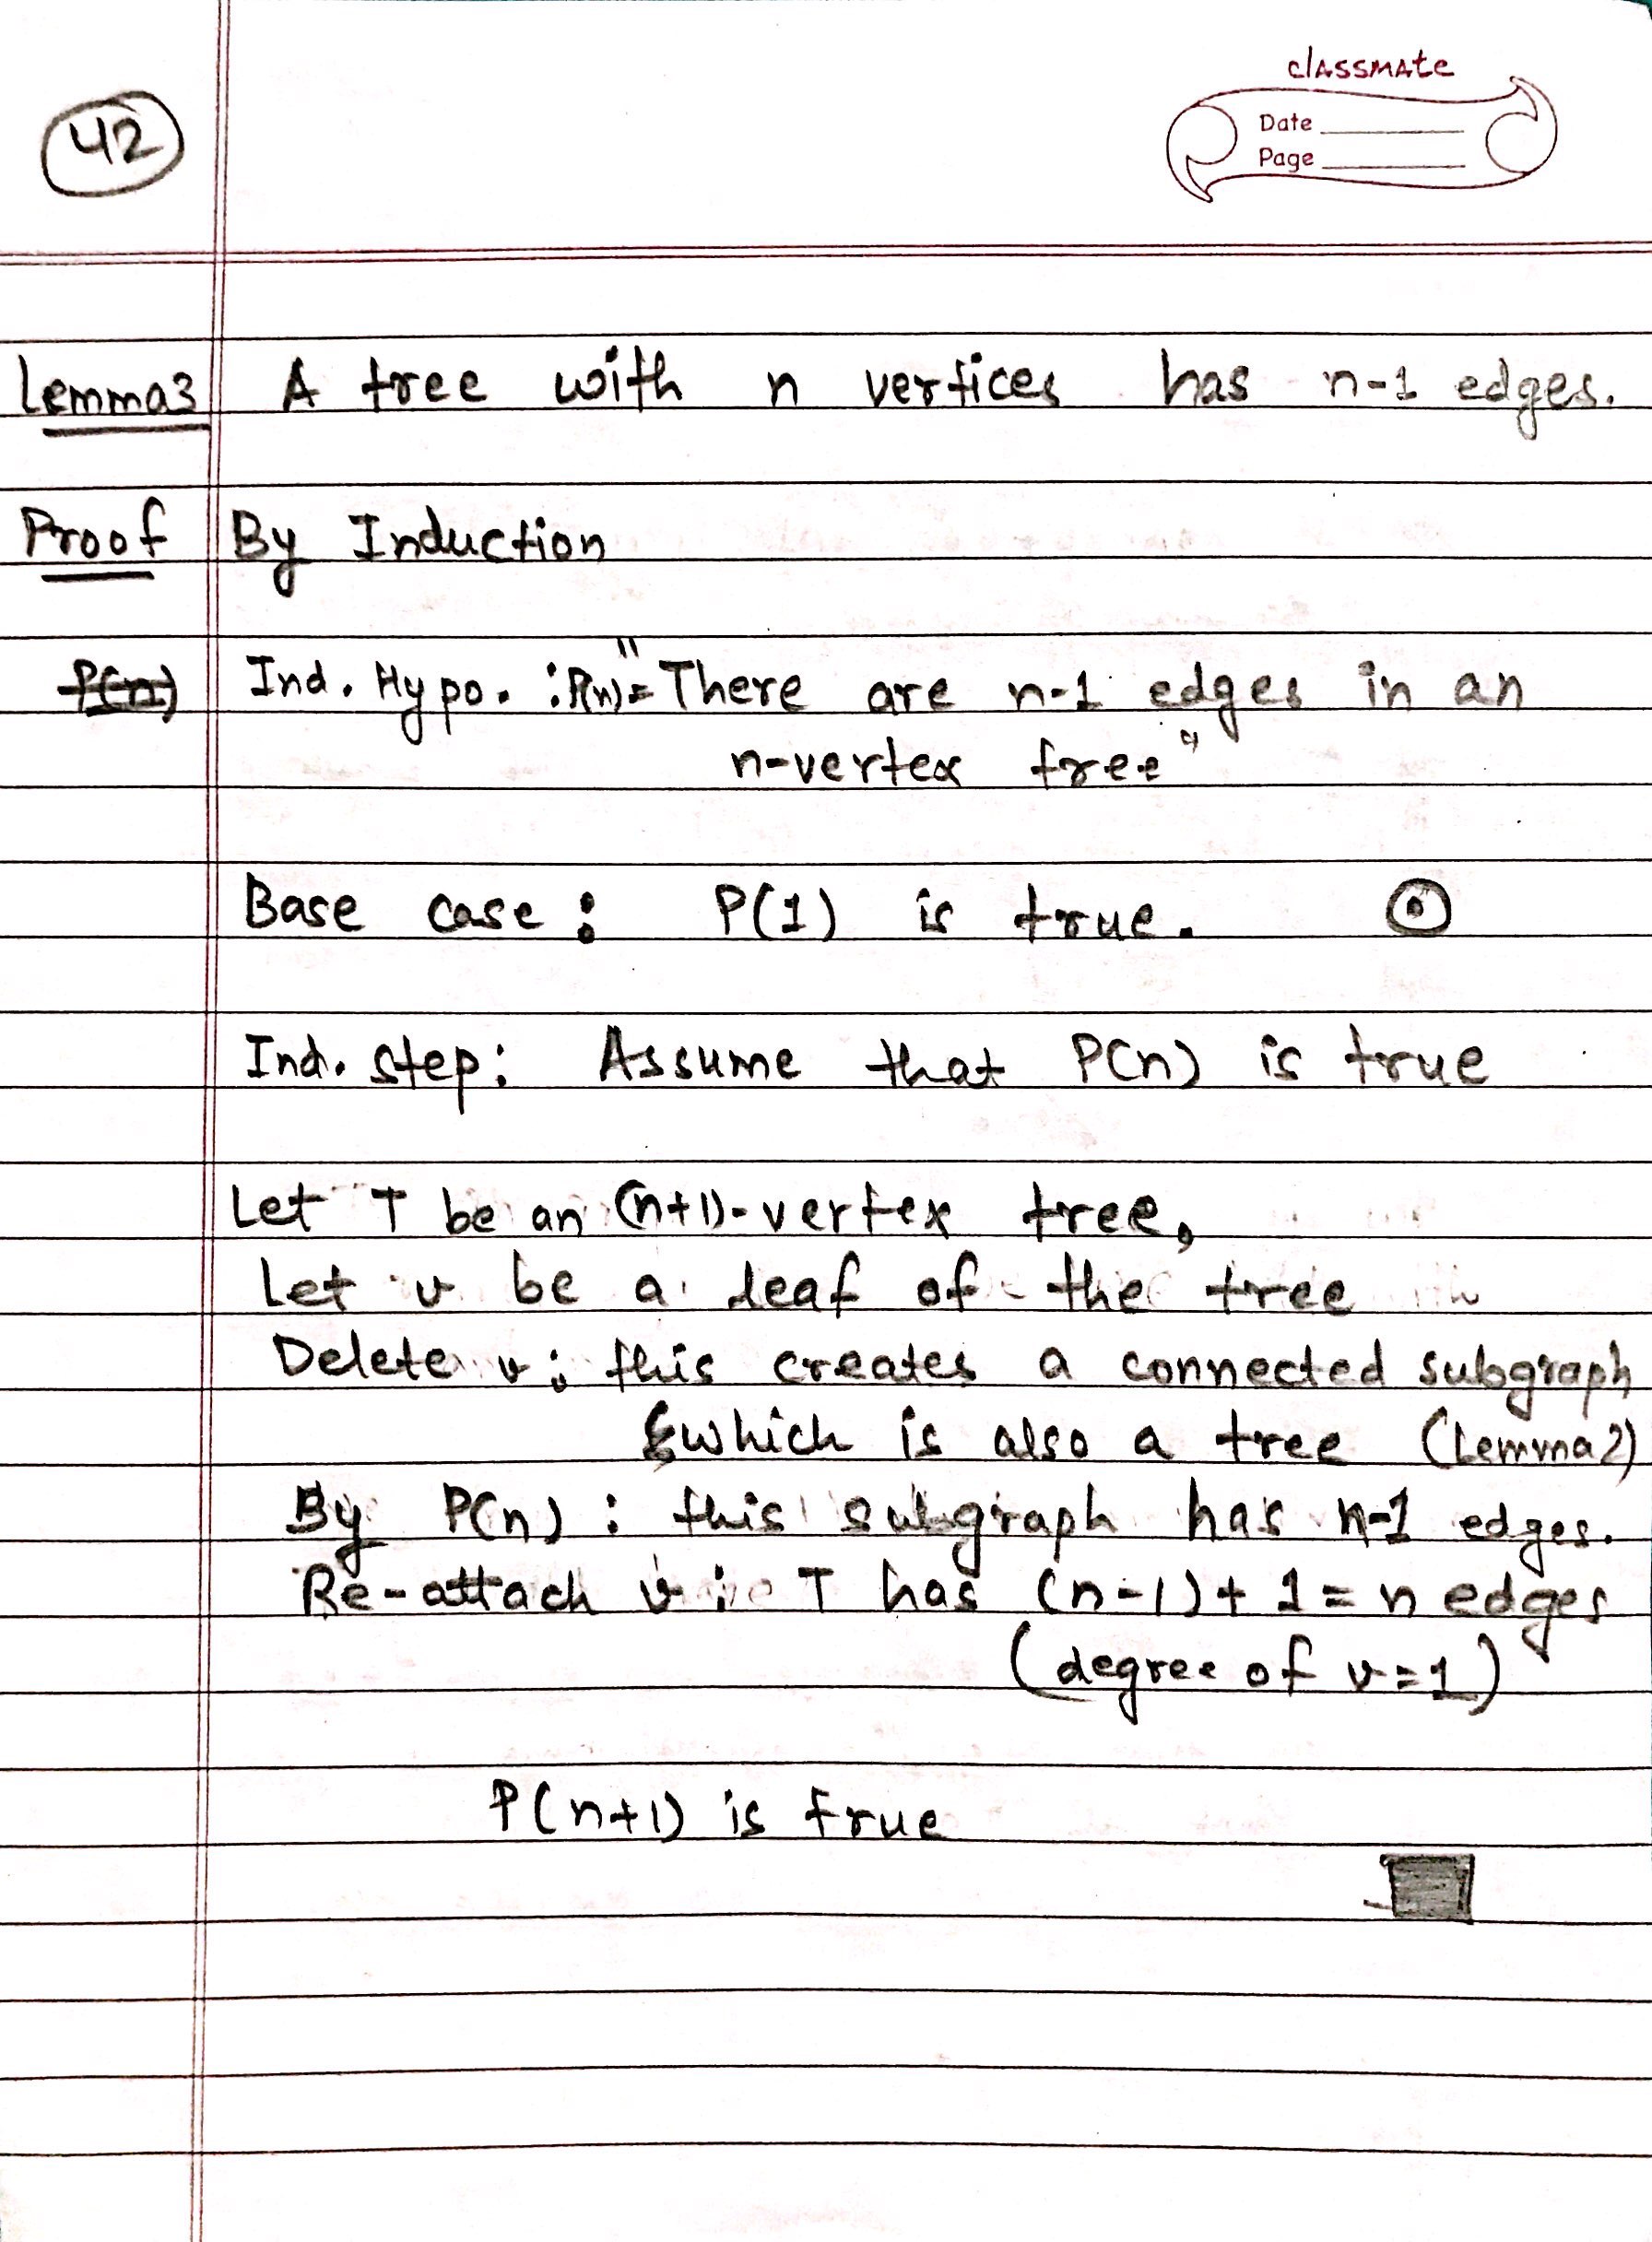 42
classmate
Date
Page
Lemma3 A tree with n vertices has n-1 edges.
Proof By Induction
P(n) Ind. Hypo. : P(n) = "There are n-1 edges in an
n-vertex tree"
Base case : P(1) is true.
Ind. step: Assume that P(n) is true
Let T be an (n+1)-vertex tree,
Let v be a leaf of the tree
Delete v : this creates a connected subgraph
which is also a tree (Lemma2)
By P(n) : this subgraph has n-1 edges.
Re-attach v : T has (n-1) + 1 = n edges
(degree of v = 1)
P(n+1) is true